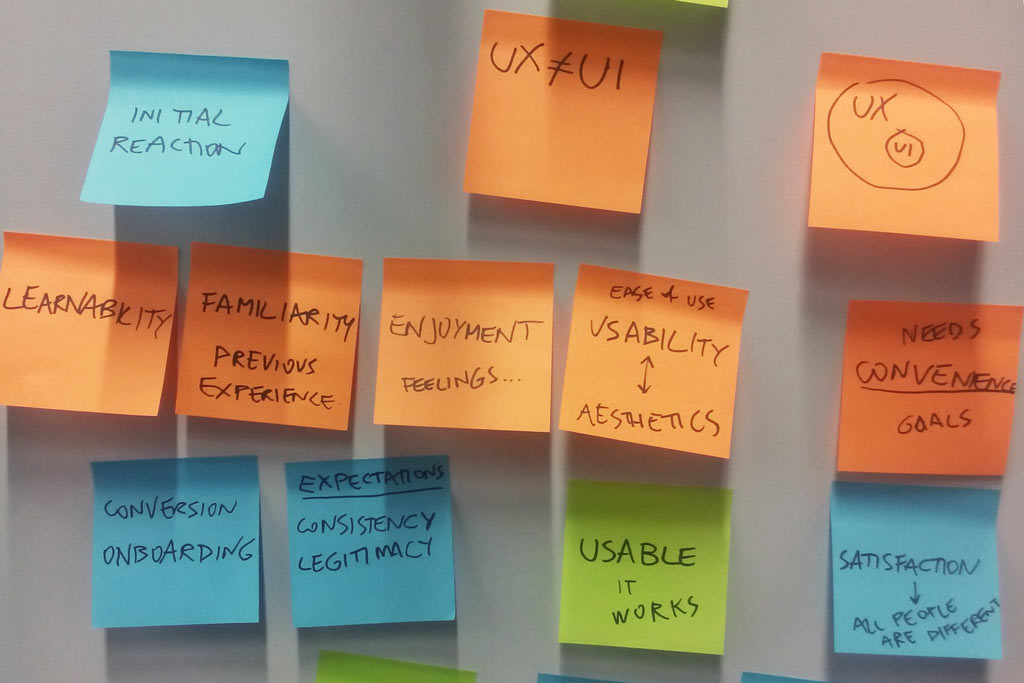 INITIAL
REACTION
UX≠UI
UX
UI
LEARNABILITY
FAMILIARITY
PREVIOUS
EXPERIENCE
ENJOYMENT
FEELINGS...
EASE & USE
USABILITY
↕
AESTHETICS
NEEDS
CONVENIENCE
GOALS
CONVERSION
ONBOARDING
EXPECTATIONS
CONSISTENCY
LEGITIMACY
USABLE
IT
WORKS
SATISFACTION
↓
ALL PEOPLE
ARE DIFFERENT